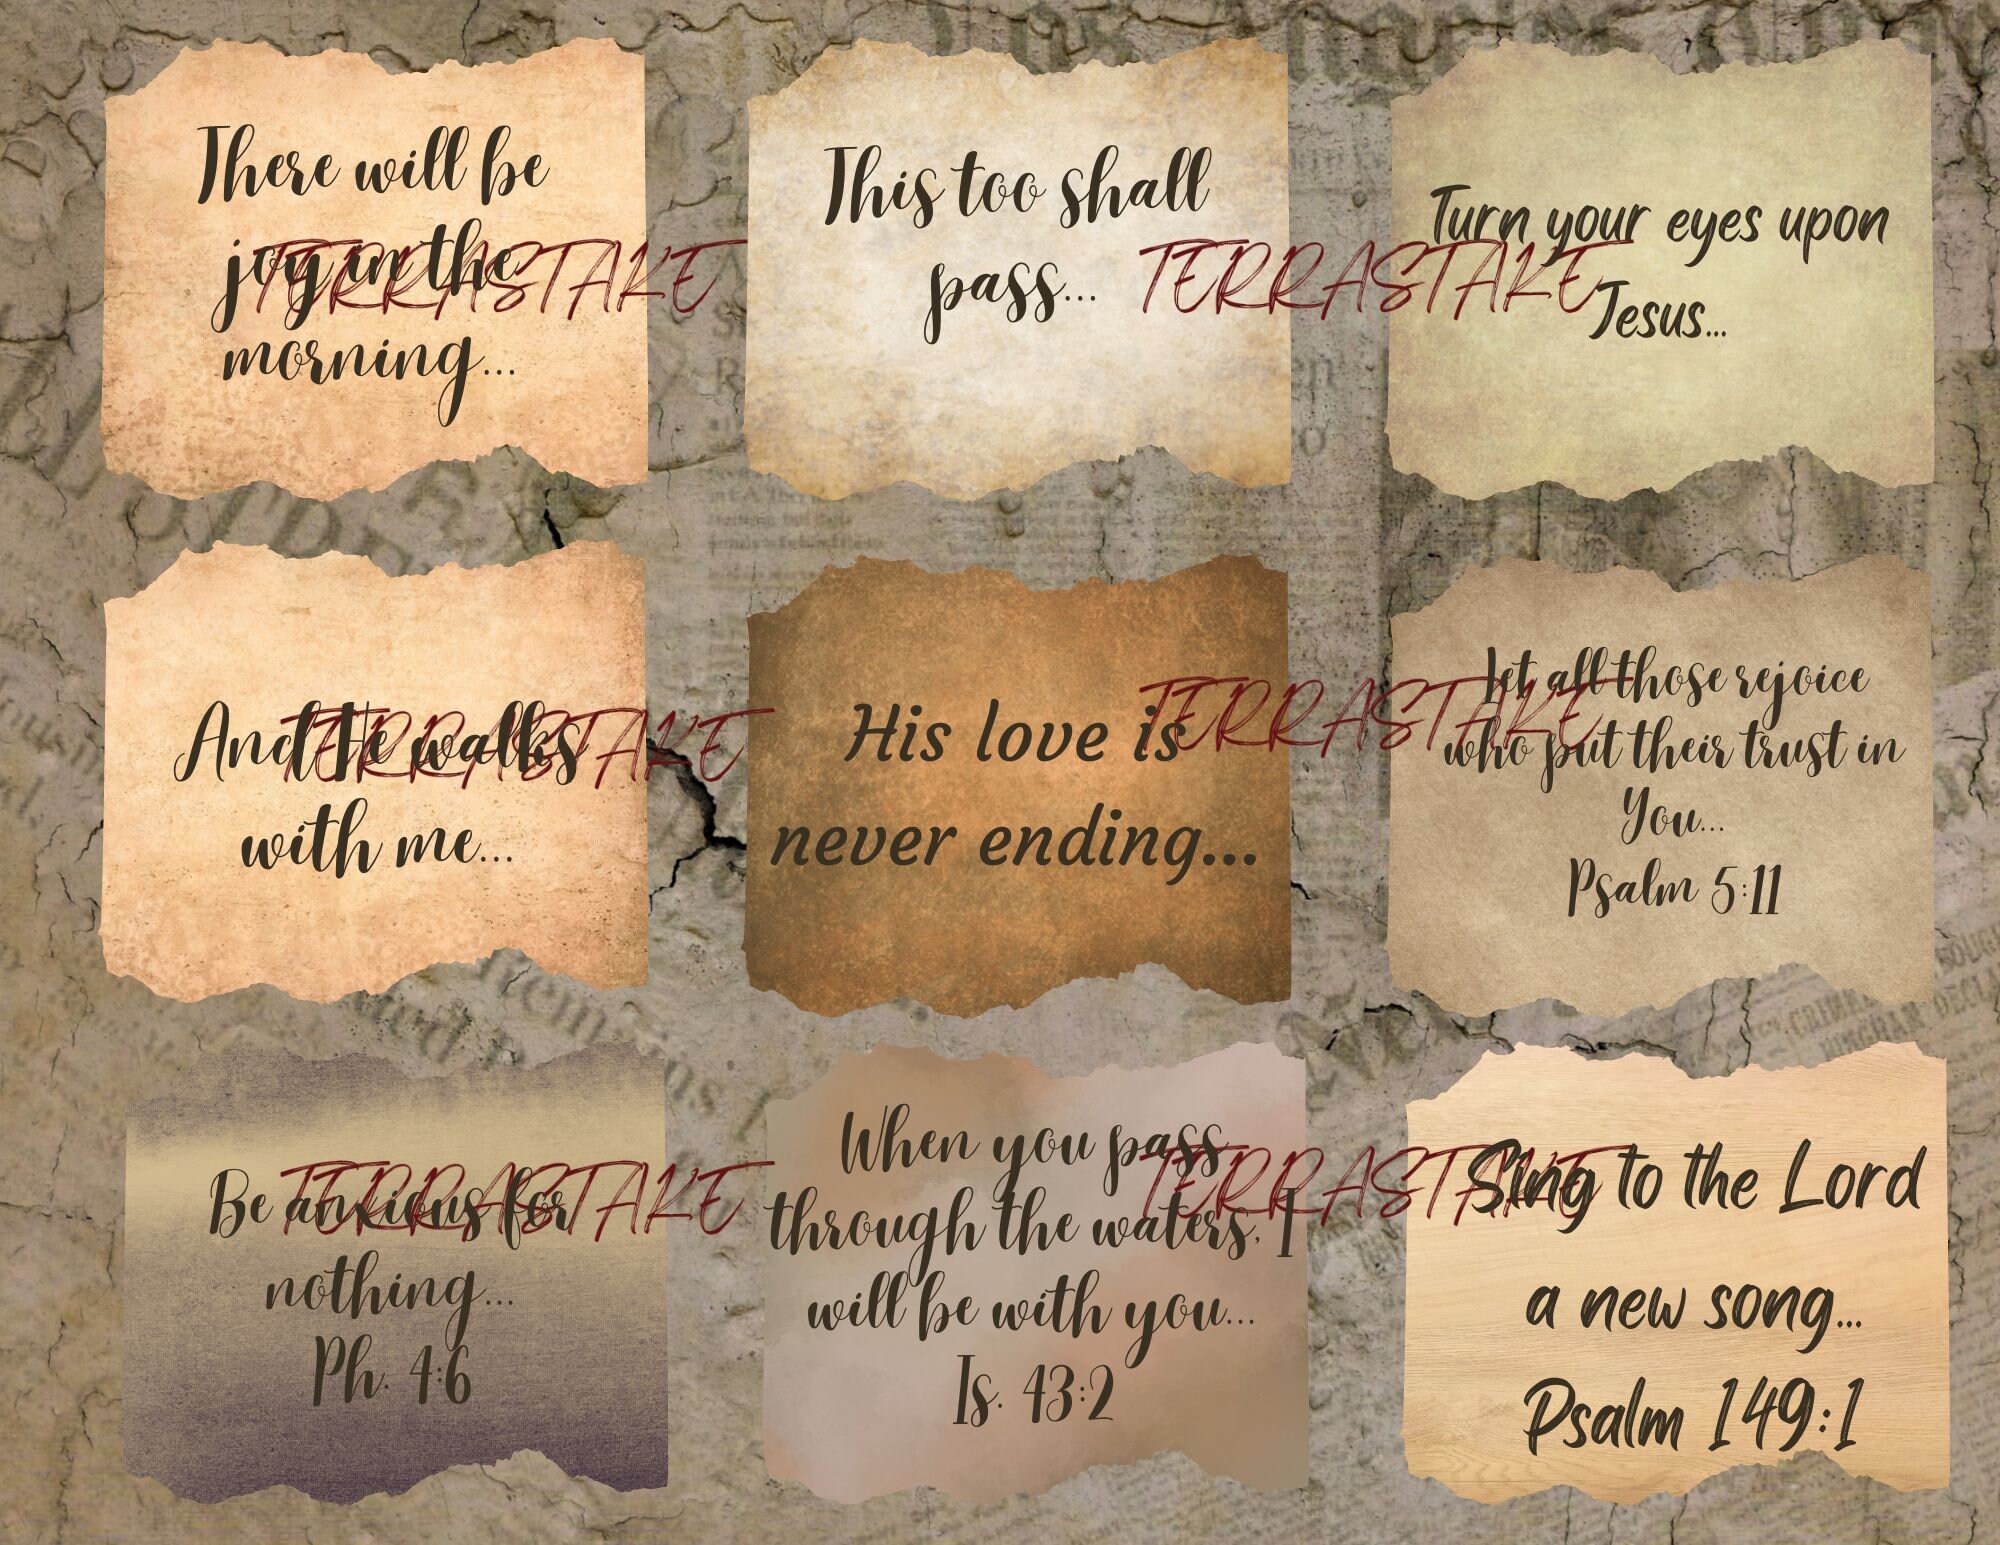 There will be
joy in the
morning...
This too shall
pass...
Turn your eyes upon
Jesus...
And He walks
with me...
His love is
never ending...
Let all those rejoice
who put their trust in
You...
Psalm 5:11
Be anxious for
nothing...
Ph. 4:6
When you pass
through the waters, I
will be with you...
Is. 43:2
Sing to the Lord
a new song...
Psalm 149:1
TERRASTAKE
TERRASTAKE
TERRASTAKE
TERRASTAKE
TERRASTAKE
TERRASTAKE